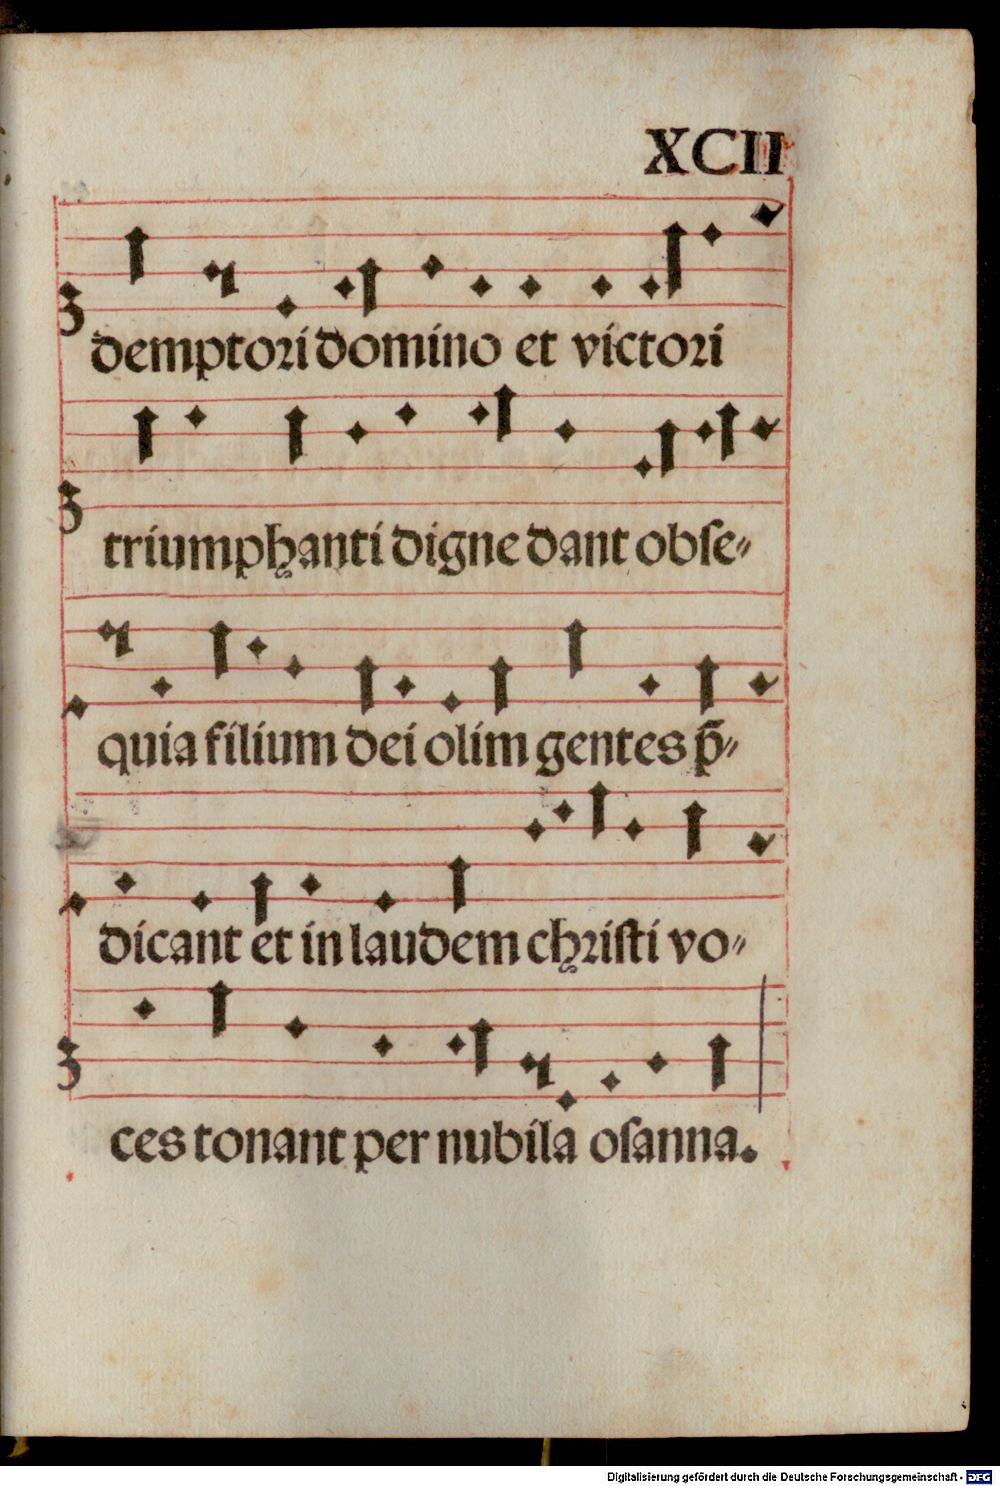 XCII
demptori domino et victori
triumphanti digne dant obſe⸗
quia filium dei olim gentes p̃⸗
dicant et in laudem chriſti vo⸗
ces tonant per nubila oſanna.
Digitalisierung gefördert durch die Deutsche Forschungsgemeinschaft - DFG